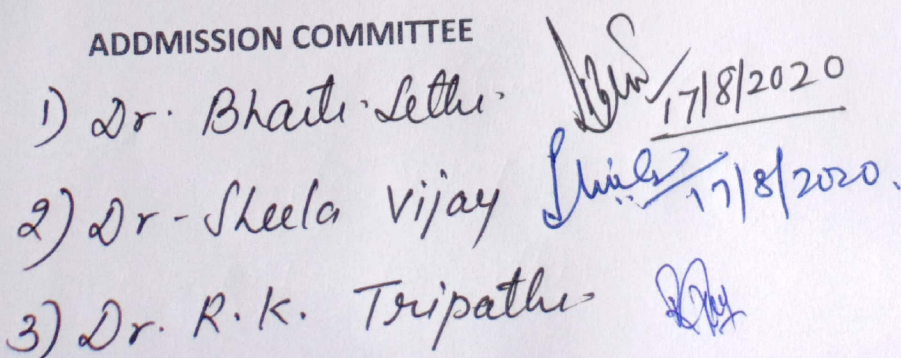 ADDMISSION COMMITTEE
1) Dr. Bharti Sethi 17/8/2020
2) Dr - Sheela Vijay 17/8/2020.
3) Dr. R. K. Tripathi